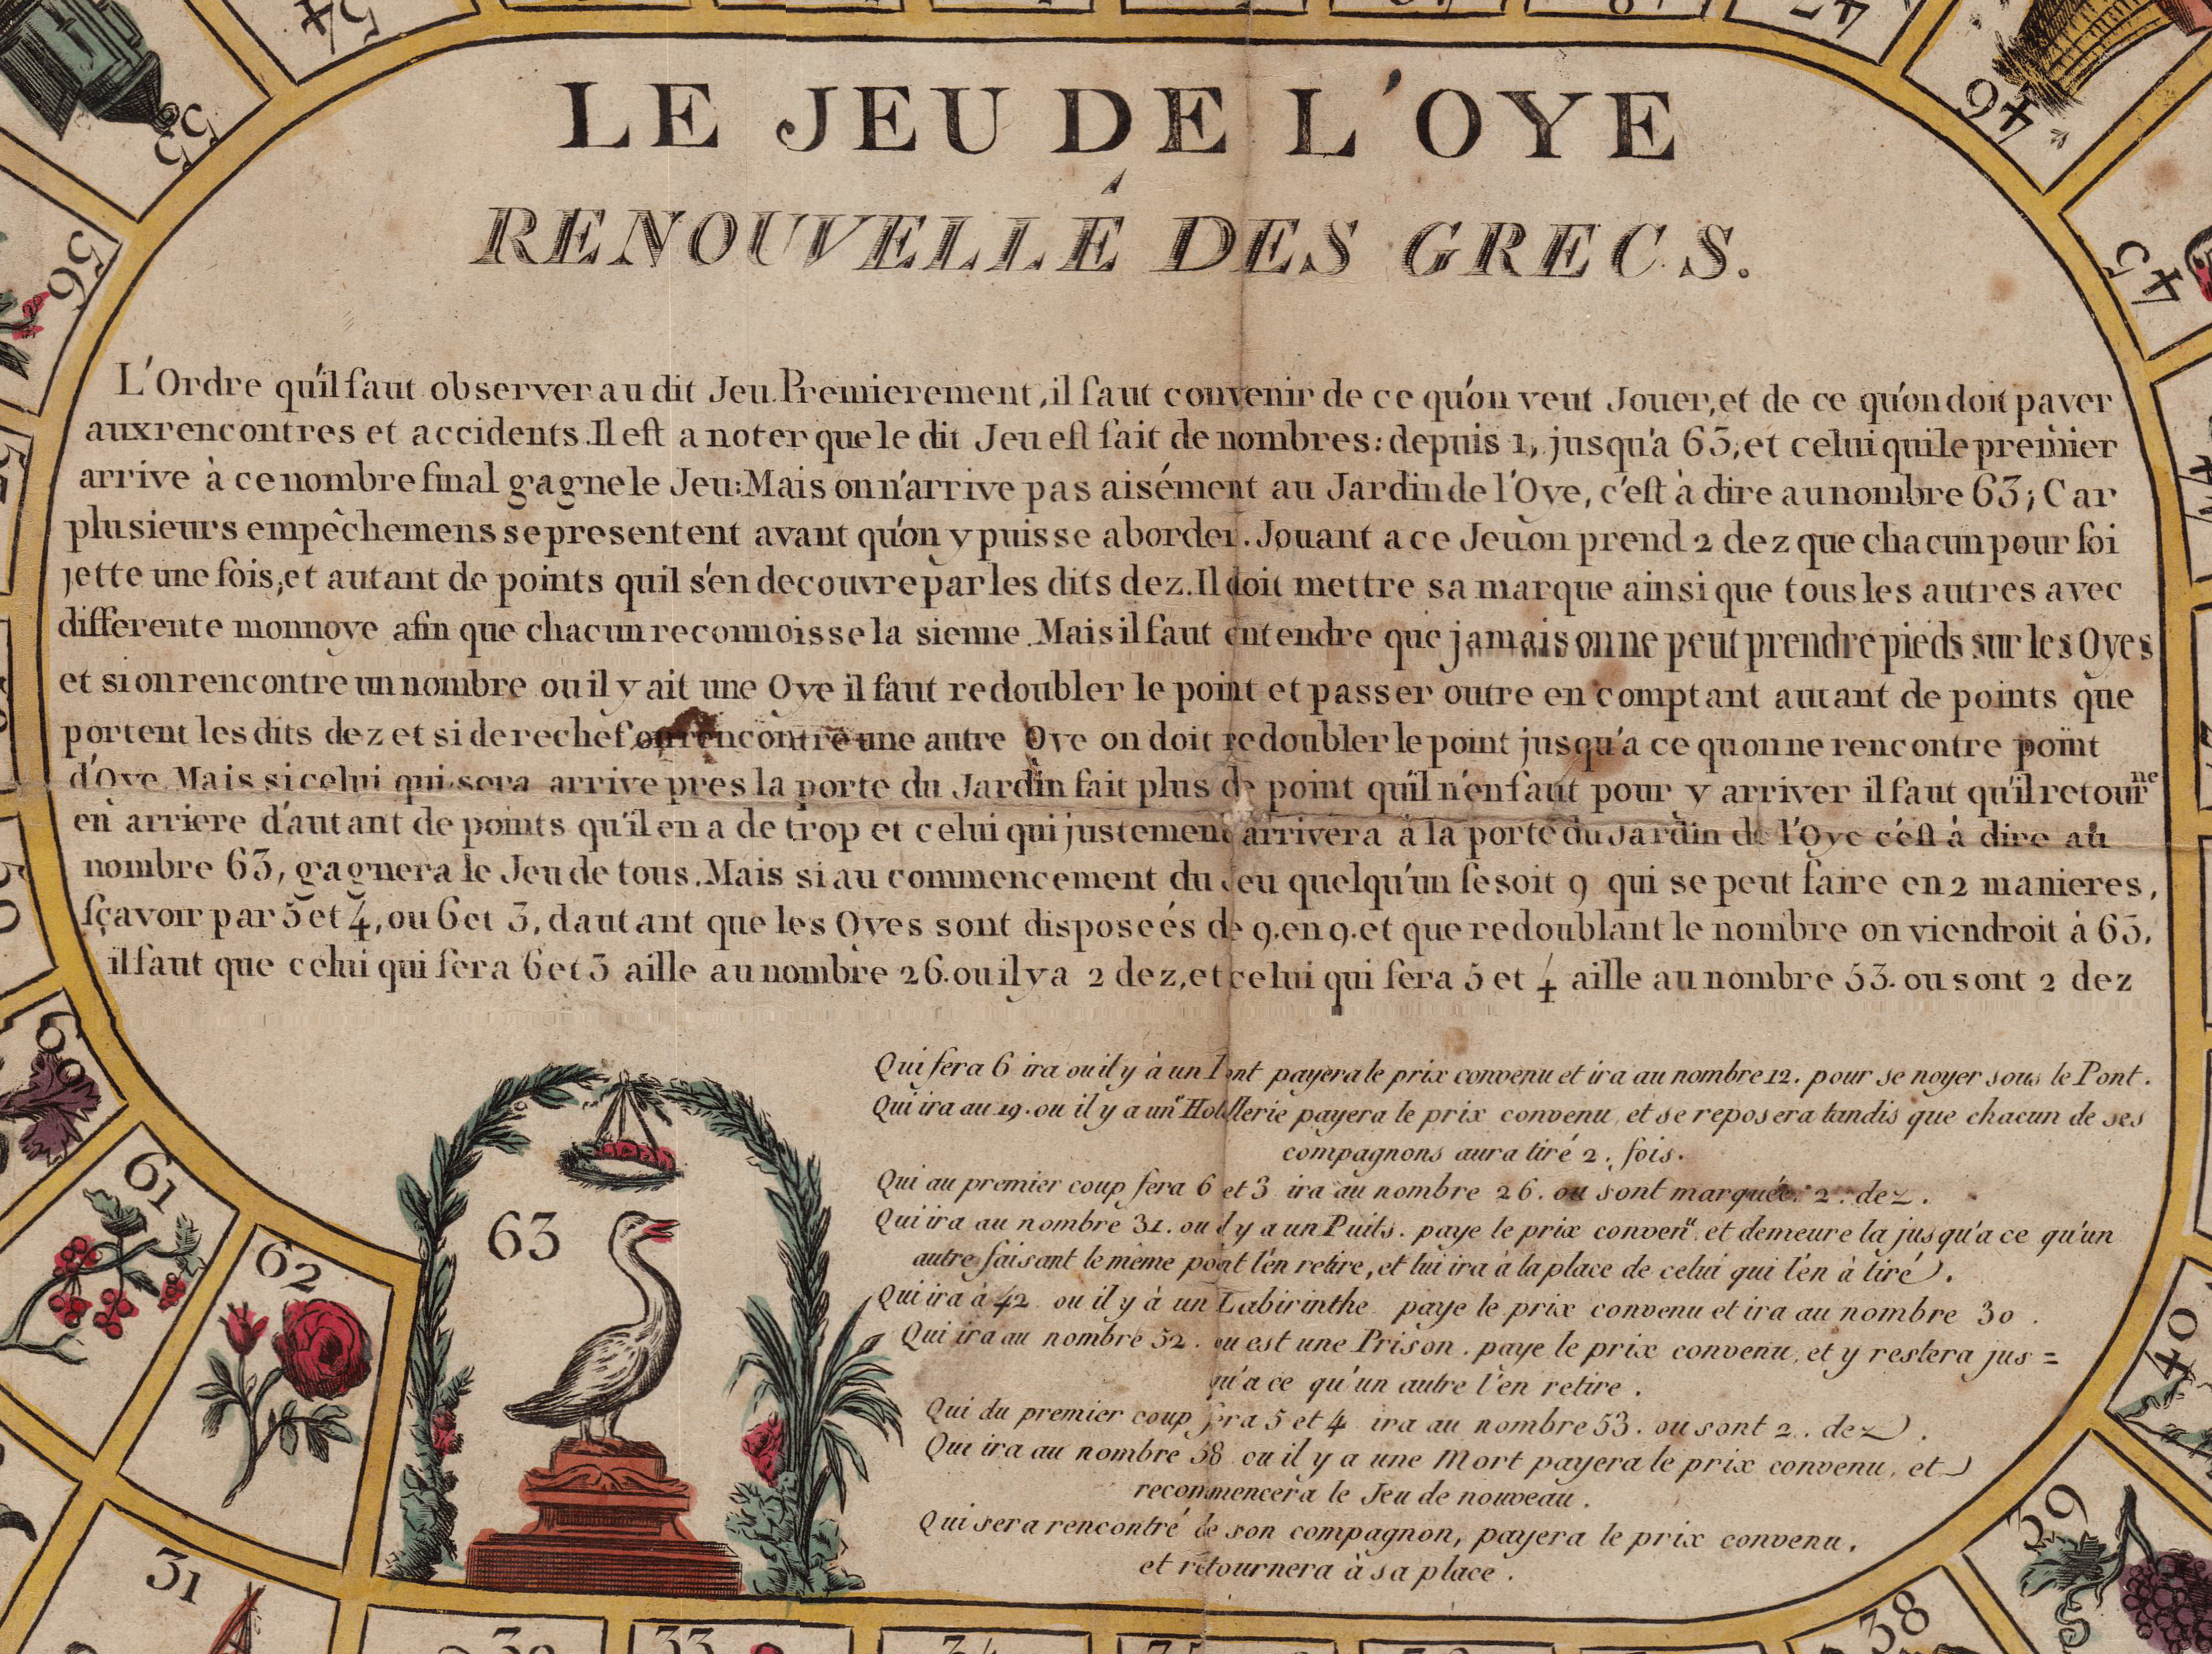 LE JEU DE L'OYE
RENOUVELLÉ DES GRECS.
L'Ordre qu'il faut observer au dit Jeu. Premierement, il faut convenir de ce qu'on veut Jouer, et de ce qu'on doit payer
aux rencontres et accidents. Il est a noter que le dit Jeu est fait de nombres: depuis 1, jusqu'a 63, et celui qui le premier
arrive à ce nombre final gagne le Jeu: Mais on n'arrive pas aisément au Jardin de l'Oye, c'est à dire au nombre 63; Car
plusieurs empêchemens se presentent avant qu'on y puisse aborder. Jouant a ce Jeu on prend 2 dez que chacun pour soi
jette une fois, et autant de points qu'il s'en decouvre par les dits dez. Il doit mettre sa marque ainsi que tous les autres avec
differente monnoye afin que chacun reconnoisse la sienne. Mais il faut entendre que jamais on ne peut prendre pieds sur les Oyes
et si on rencontre un nombre ou il y ait une Oye il faut redoubler le point et passer outre en comptant autant de points que
portent les dits dez et si derechef on rencontre une autre Oye on doit redoubler le point jusqu'a ce qu on ne rencontre point
d'Oye. Mais si celui qui sera arrive pres la porte du Jardin fait plus de point qu'il n'en faut pour y arriver il faut qu'il retourne
en arriere d'autant de points qu'il en a de trop et celui qui justement arrivera à la porte du Jardin de l'Oye c'est à dire au
nombre 63, gagnera le Jeu de tous. Mais si au commencement du Jeu quelqu'un fesoit 9 qui se peut faire en 2 manieres,
sçavoir par 5 et 4, ou 6 et 3, dautant que les Oyes sont disposeés de 9. en 9. et que redoublant le nombre on viendroit à 63,
il faut que celui qui fera 6 et 3 aille au nombre 26. ou il y a 2 dez, et celui qui fera 5 et 4 aille au nombre 53. ou sont 2 dez
Qui fera 6 ira ou il y à un Pont payera le prix convenu et ira au nombre 12. pour se noyer sous le Pont.
Qui ira au 19. ou il y a une Hotellerie payera le prix convenu, et se reposera tandis que chacun de ses
compagnons aura tiré 2. fois.
Qui au premier coup fera 6 et 3 ira au nombre 26. ou sont marquée. 2. dez.
Qui ira au nombre 31. ou il y a un Puits. paye le prix convenu. et demeure la jusqu'a ce qu'un
autre faisant le même point l'en retire, et lui ira à la place de celui qui l'en à tiré.
Qui ira à 42. ou il y à un Labirinthe paye le prix convenu et ira au nombre 30.
Qui ira au nombre 52. ou est une Prison. paye le prix convenu, et y restera jus =
qu'a ce qu'un autre l'en retire.
Qui du premier coup fera 5 et 4 ira au nombre 53. ou sont 2. dez.
Qui ira au nombre 58 ou il y a une Mort payera le prix convenu, et
recommencera le Jeu de nouveau.
Qui sera rencontré de son compagnon, payera le prix convenu,
et retournera à sa place.
63
54
55
56
60
61
62
31
33
38
39
40
45
46
47